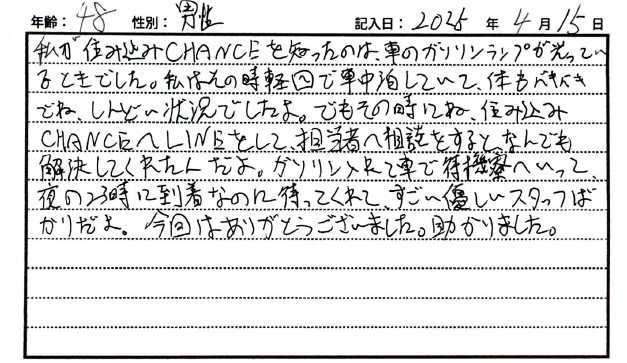 年齢：48 性別：男性 記入日：2025年4月15日
私が住み込みCHANCEを知ったのは、車のガソリンランプが光ってい
るときでした。私はその時軽四で車中泊していて、体もバキバキ
でね、しんどい状況でしたよ。でもその時にね、住み込み
CHANCEへLINEをして、担当者へ相談をするとなんでも
解決してくれたんだよ。ガソリン入れて車で待機寮へいって、
夜の23時に到着なのに待ってくれて、すごい優しいスタッフば
かりだよ。今回はありがとうございました。助かりました。